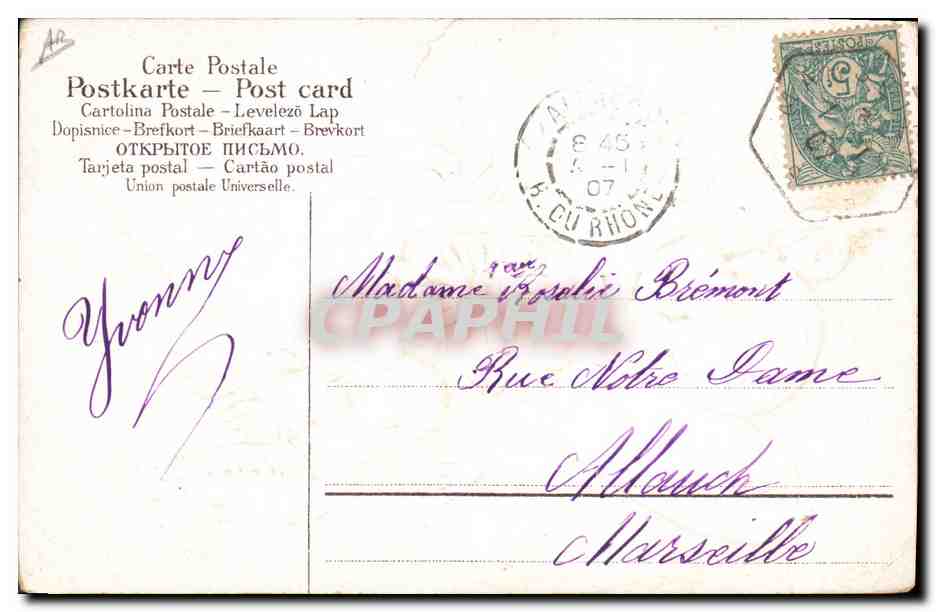 AR
Carte Postale
Postkarte — Post card
Cartolina Postale – Levelezō Lap
Dopisnice – Brefkort – Briefkaart – Brevkort
ОТКРЫТОЕ ПИСЬМО.
Tarjeta postal — Cartão postal
Union postale Universelle.
8 45
07
B. DU RHONE
POSTES
5
Yvonne
Madame Rosalie Brémont
Rue Notre Dame
Allauch
Marseille
CPAPHIL